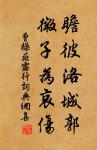 瞻彼洛城郭
微子為哀傷
曹操薤露行詞典網喜